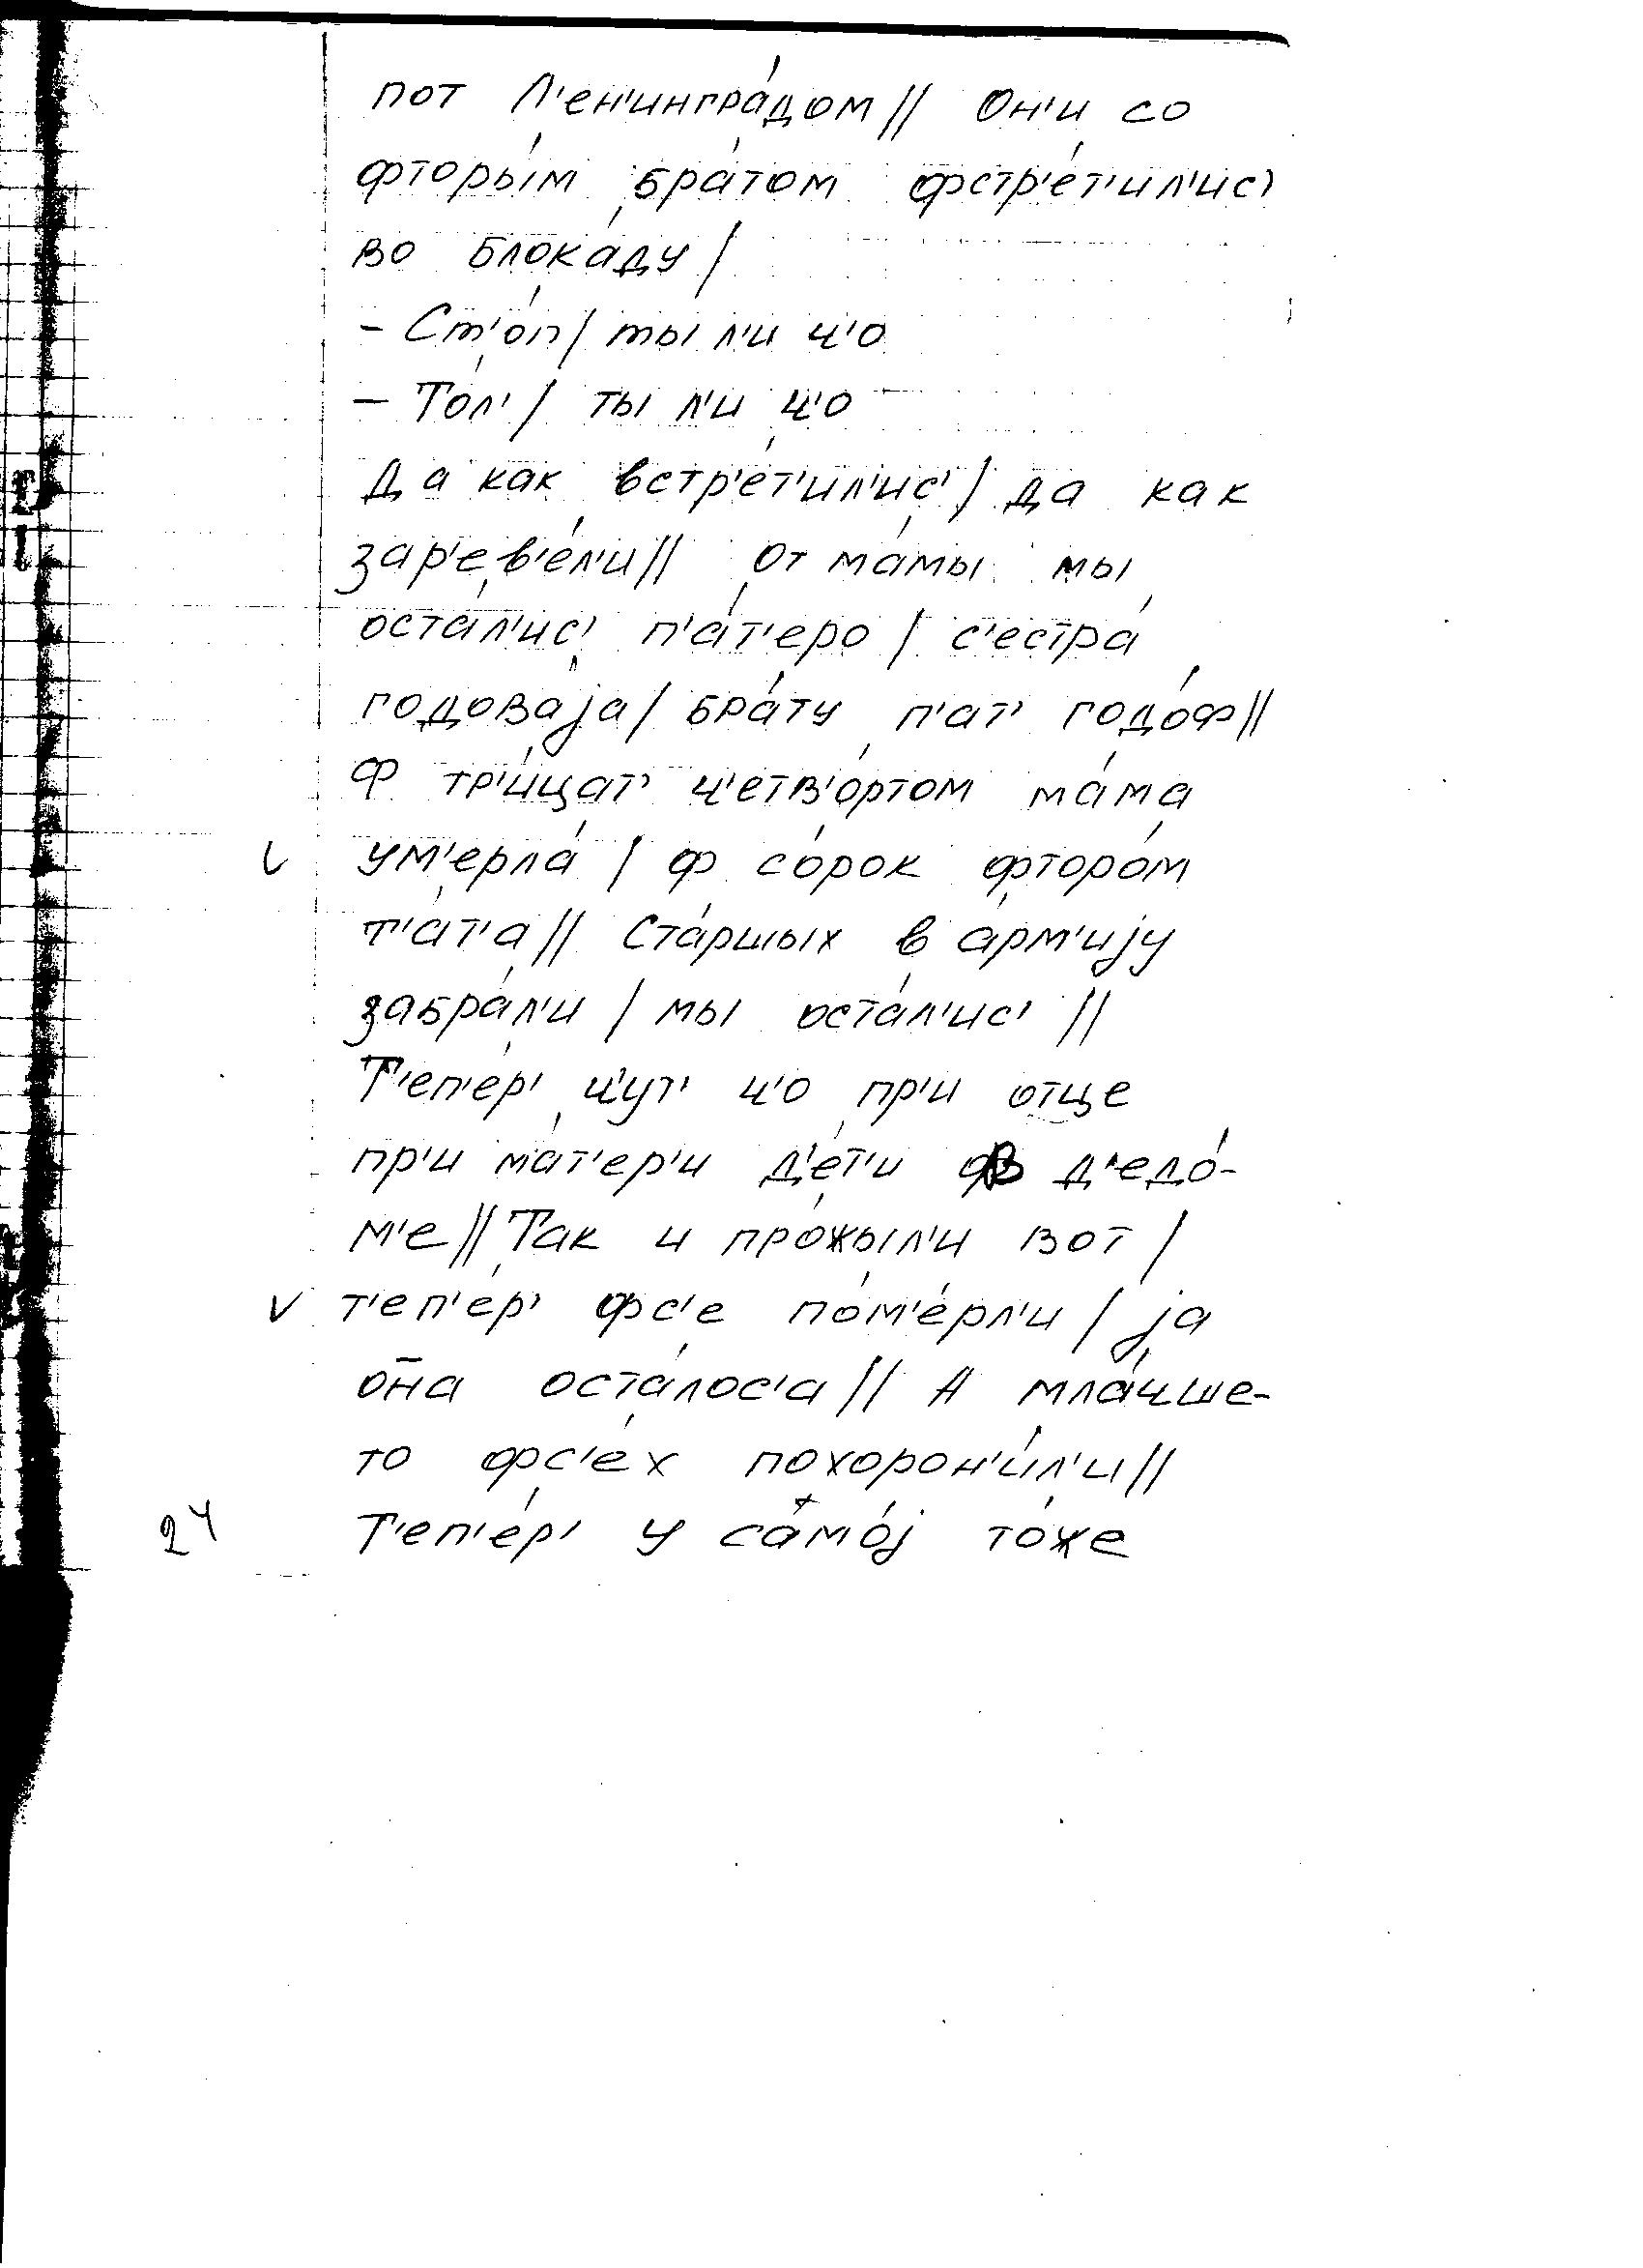 пот Л'ен'ингра́дом // Он'и со
фторы́м бра́том фстр'е́т'ил'ис'
во блока́ду /
- Ст'о́п / ты л'и ч'о
- То́л' / ты л'и ч'о
Да как встр'е́т'ил'ис' / да как
зар'ев'е́л'и // От ма́мы мы
оста́л'ис' п'а́т'еро / с'естра́
годоваjа / бра́ту п'ат' годо́ф //
Ф тр'и́цат' ч'етв'о́ртом ма́ма
ум'ерла́ / ф со́рок фторо́м
т'а́т'а // Ста́ршых в а́рм'иjу
забра́л'и / мы оста́л'ис' //
Т'еп'е́р' ч'ут' ч'о пр'и отце
пр'и ма́т'ер'и д'е́т'и в д'едо́-
м'е // Так и про́жыл'и вот /
т'еп'е́р' фс'е по́м'е́рл'и / jа
она оста́лос'а // А мла́чше-
то фс'е́х похорон'и́л'и //
Т'еп'е́р' у само́j то́же
24